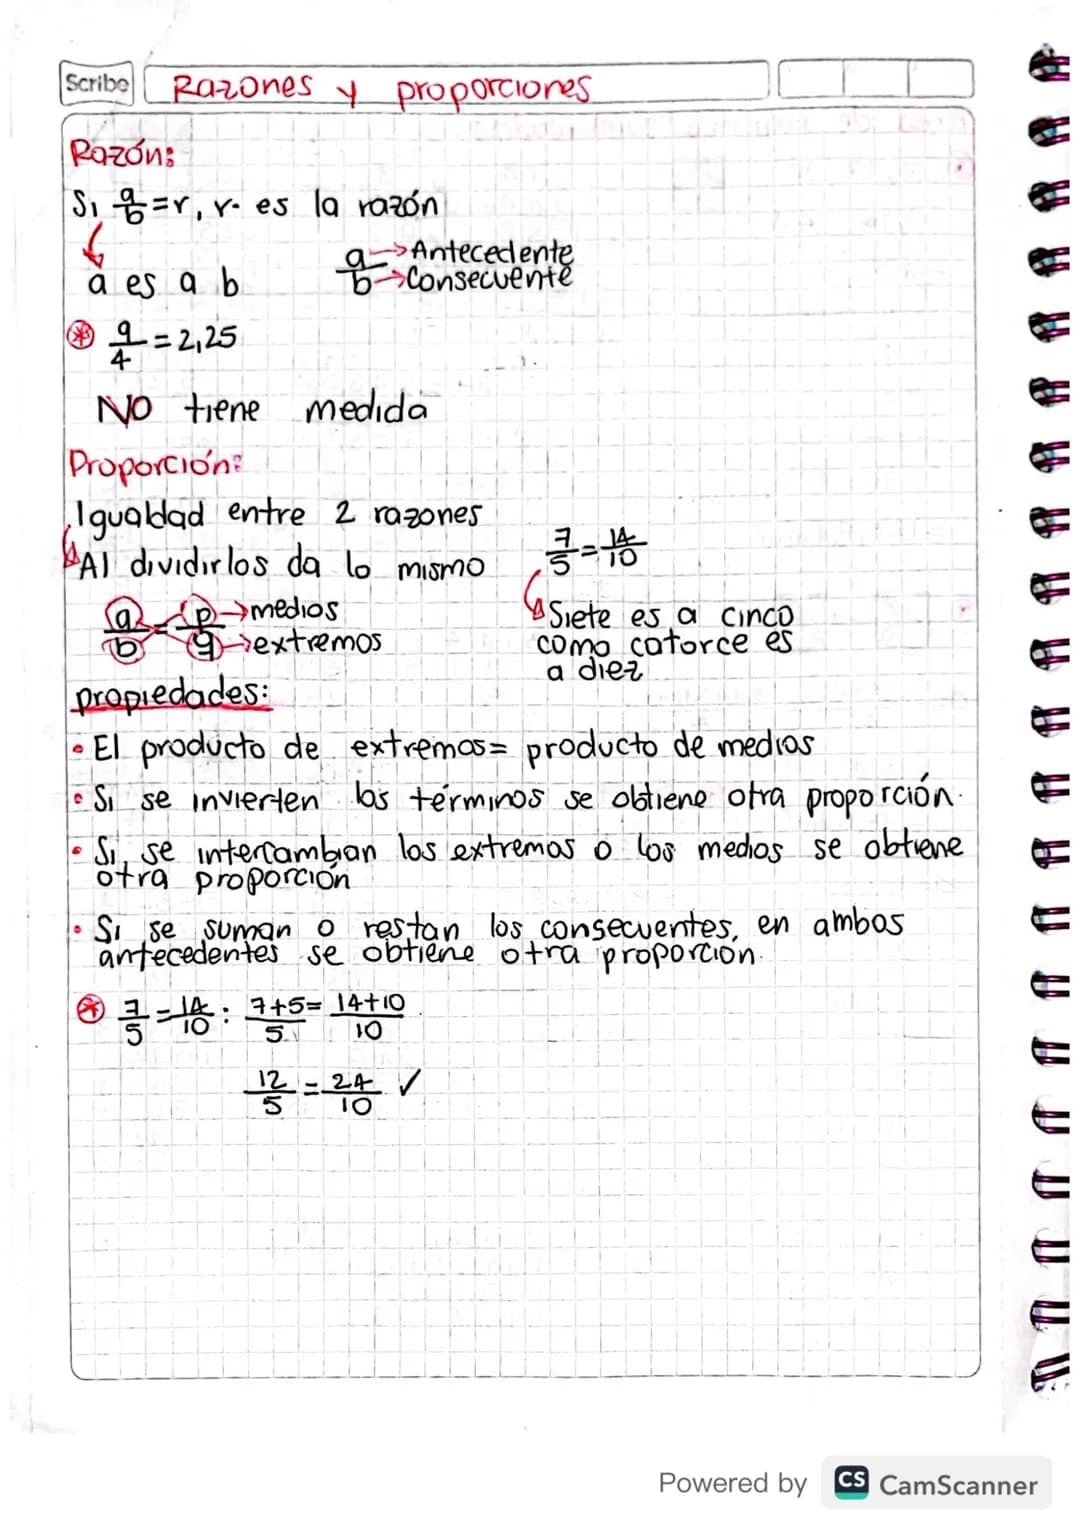 Scribe
Razones y proporciones
Razón:
Si a/b = r, r es la razón
a es a b
a/b → Antecedente
→ Consecuente
* 9/4 = 2,25
NO tiene medida
Proporción:
Igualdad entre 2 razones
Al dividirlos da lo mismo
7/5 = 14/10
a/b = p/q → medios
→ extremos
Siete es a cinco
como catorce es
a diez
propiedades:
• El producto de extremos = producto de medios
• Si se invierten los términos se obtiene otra proporción.
• Si, se intercambian los extremos o los medios se obtiene
otra proporción
• Si se suman o restan los consecuentes, en ambos
antecedentes se obtiene otra proporción.
* 7/5 = 14/10 : 7+5/5 = 14+10/10
12/5 = 24/10 ✓
Powered by CS CamScanner